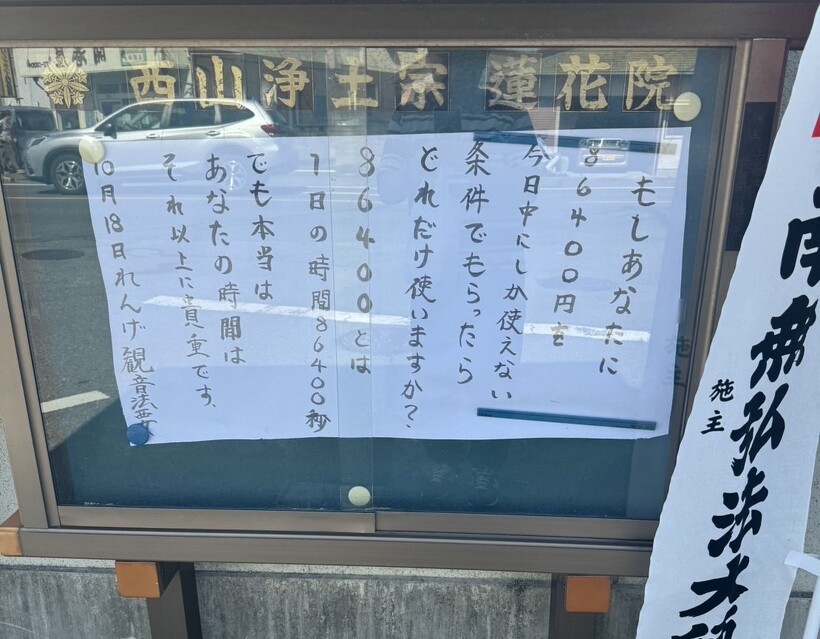 西山浄土宗 蓮花院
もしあなたに
86400円を
今日中にしか使えない
条件でもらったら
どれだけ使いますか?
86400とは
1日の時間86400秒
でも本当は
あなたの時間は
それ以上に貴重です、
10月18日れんげ観音法要
南無弘法大師
施主